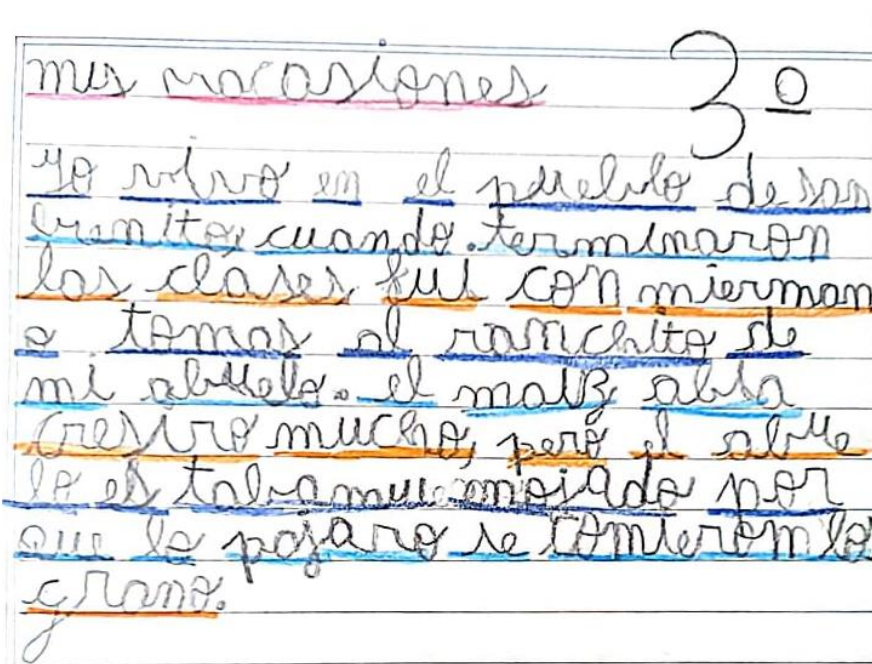 mis vacasiones 3º
yo vivo en el pueblo de san
benito, cuando terminaron
las clases fui con mierman
o tomas al ranchito de
mi abuelo. el maiz abia
cresiro mucho, pero el abue
lo es taba muu enojado por
que lo pajaro se comierom lo
grano.